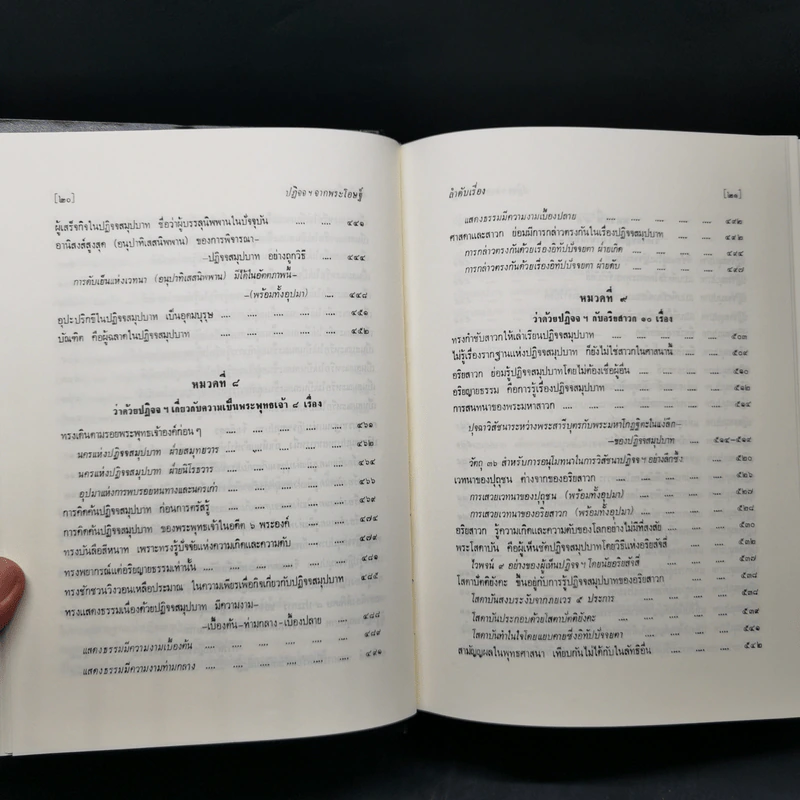 [๒๐] ปฏิจจ ฯ จากพระโอษฐ์
ผู้เสร็จกิจในปฏิจจสมุปบาท ชื่อว่าผู้บรรลุนิพพานในปัจจุบัน .... .... ๔๔๑
อานิสงส์สูงสุด (อนุปาทิเสสนิพพาน) ของการพิจารณา–
–ปฏิจจสมุปบาท อย่างถูกวิธี .... .... .... ๔๔๔
การดับเย็นแห่งเวทนา (อนุปาทิเสสนิพพาน) มีได้ในอัตตภาพนี้–
–(พร้อมทั้งอุปมา) .... .... .... ๔๔๘
อุปะปริกขีในปฏิจจสมุปบาท เป็นอุดมบุรุษ .... .... .... .... .... ๔๕๑
บัณฑิต คือผู้ฉลาดในปฏิจจสมุปบาท .... .... .... .... .... ๔๕๒
หมวดที่ ๘
ว่าด้วยปฏิจจ ฯ เกี่ยวกับความเป็นพระพุทธเจ้า ๘ เรื่อง
ทรงเดินตามรอยพระพุทธเจ้าองค์ก่อน ๆ .... .... .... .... .... ๔๖๑
นครแห่งปฏิจจสมุปบาท ฝ่ายสมุทยวาร .... .... .... .... .... ๔๖๒
นครแห่งปฏิจจสมุปบาท ฝ่ายนิโรธวาร .... .... .... .... .... ๔๖๔
อุปมาแห่งการพบรอยหนทางและนครเก่า .... .... .... .... ๔๖๖
การคิดค้นปฏิจจสมุปบาท ก่อนการตรัสรู้ .... .... .... .... ๔๖๙
การคิดค้นปฏิจจสมุปบาท ของพระพุทธเจ้าในอดีต ๖ พระองค์ .... .... ๔๗๔
ทรงบันลือสีหนาท เพราะทรงรู้ปัจจัยแห่งความเกิดและความดับ .... ....
ทรงพยากรณ์แต่อริยญายธรรมเท่านั้น .... .... .... .... .... ๔๘๑
ทรงชักชวนวิงวอนเหลือประมาณ ในความเพียรเพื่อกิจเกี่ยวกับปฏิจจสมุปบาท ๔๘๕
ทรงแสดงธรรมเนื่องด้วยปฏิจจสมุปบาท มีความงาม–
–เบื้องต้น–ท่ามกลาง–เบื้องปลาย .... .... .... ๔๘๘
แสดงธรรมมีความงามเบื้องต้น .... .... .... .... .... ๔๘๙
แสดงธรรมมีความงามท่ามกลาง .... .... .... .... .... ๔๙๑
ลำดับเรื่อง [๒๑]
แสดงธรรมมีความงามเบื้องปลาย .... .... .... .... .... ๔๙๒
ศาสดาและสาวก ย่อมมีการกล่าวตรงกันในเรื่องปฏิจจสมุปบาท .... .... ๔๙๒
การกล่าวตรงกันด้วยเรื่องอิทัปปัจจยตา ฝ่ายเกิด .... .... ....
การกล่าวตรงกันด้วยเรื่องอิทัปปัจจยตา ฝ่ายดับ .... .... .... ๔๙๘
หมวดที่ ๙
ว่าด้วยปฏิจจ ฯ กับอริยสาวก ๑๐ เรื่อง
ทรงกำชับสาวกให้เล่าเรียนปฏิจจสมุปบาท .... .... .... .... ๕๐๓
ไม่รู้เรื่องรากฐานแห่งปฏิจจสมุปบาท ก็ยังไม่ใช่สาวกในศาสนานี้ .... .... ๕๐๔
อริยสาวก ย่อมรู้ปฏิจจสมุปบาทโดยไม่ต้องเชื่อผู้อื่น .... .... ....
อริยญายธรรม คือการรู้เรื่องปฏิจจสมุปบาท .... .... .... .... ๕๑๒
การสนทนาของพระมหาสาวก .... .... .... .... .... .... ๕๑๔
ปุจฉาวิสัชนาระหว่างพระสารีบุตรกับพระมหาโกฏฐิตะในแง่ลึก–
–ของปฏิจจสมุปบาท .... .... .... ๕๑๔–๕๑๔
วัตถุ ๓๖ สำหรับการอนุโมทนาในการวิสัชนาปฏิจจ ฯ อย่างลึกซึ้ง .... ๕๒๐
เวทนาของปุถุชน ต่างจากของอริยสาวก .... .... .... .... ....
การเสวยเวทนาของปุถุชน (พร้อมทั้งอุปมา) .... .... .... ๕๒๗
การเสวยเวทนาของอริยสาวก (พร้อมทั้งอุปมา) .... .... .... ๕๒๘
อริยสาวก รู้ความเกิดและความดับของโลกอย่างไม่มีที่สงสัย .... .... ๕๓๐
พระโสดาบัน คือผู้เห็นชัดปฏิจจสมุปบาทโดยวิธีแห่งอริยสัจสี่ .... ....
ไวพจน์ ๙ อย่างของผู้เห็นปฏิจจฯ โดยนัยอริยสัจสี่ .... .... ๕๓๗
โสตาปัตติยังคะ ขึ้นอยู่กับการรู้ปฏิจจสมุปบาทของอริยสาวก .... ....
โสดาบันสงบระงับจากภัยเวร ๕ ประการ .... .... .... ๕๓๘
โสดาบันประกอบด้วยโสตาปัตติยังคะ .... .... .... .... ๕๓๙
โสดาบันทำในใจโดยแยบคายซึ่งอิทัปปัจจยตา .... .... .... ๕๔๑
สามัญญผลในพุทธศาสนา เทียบกันไม่ได้กับในลัทธิอื่น .... .... .... ๕๔๒